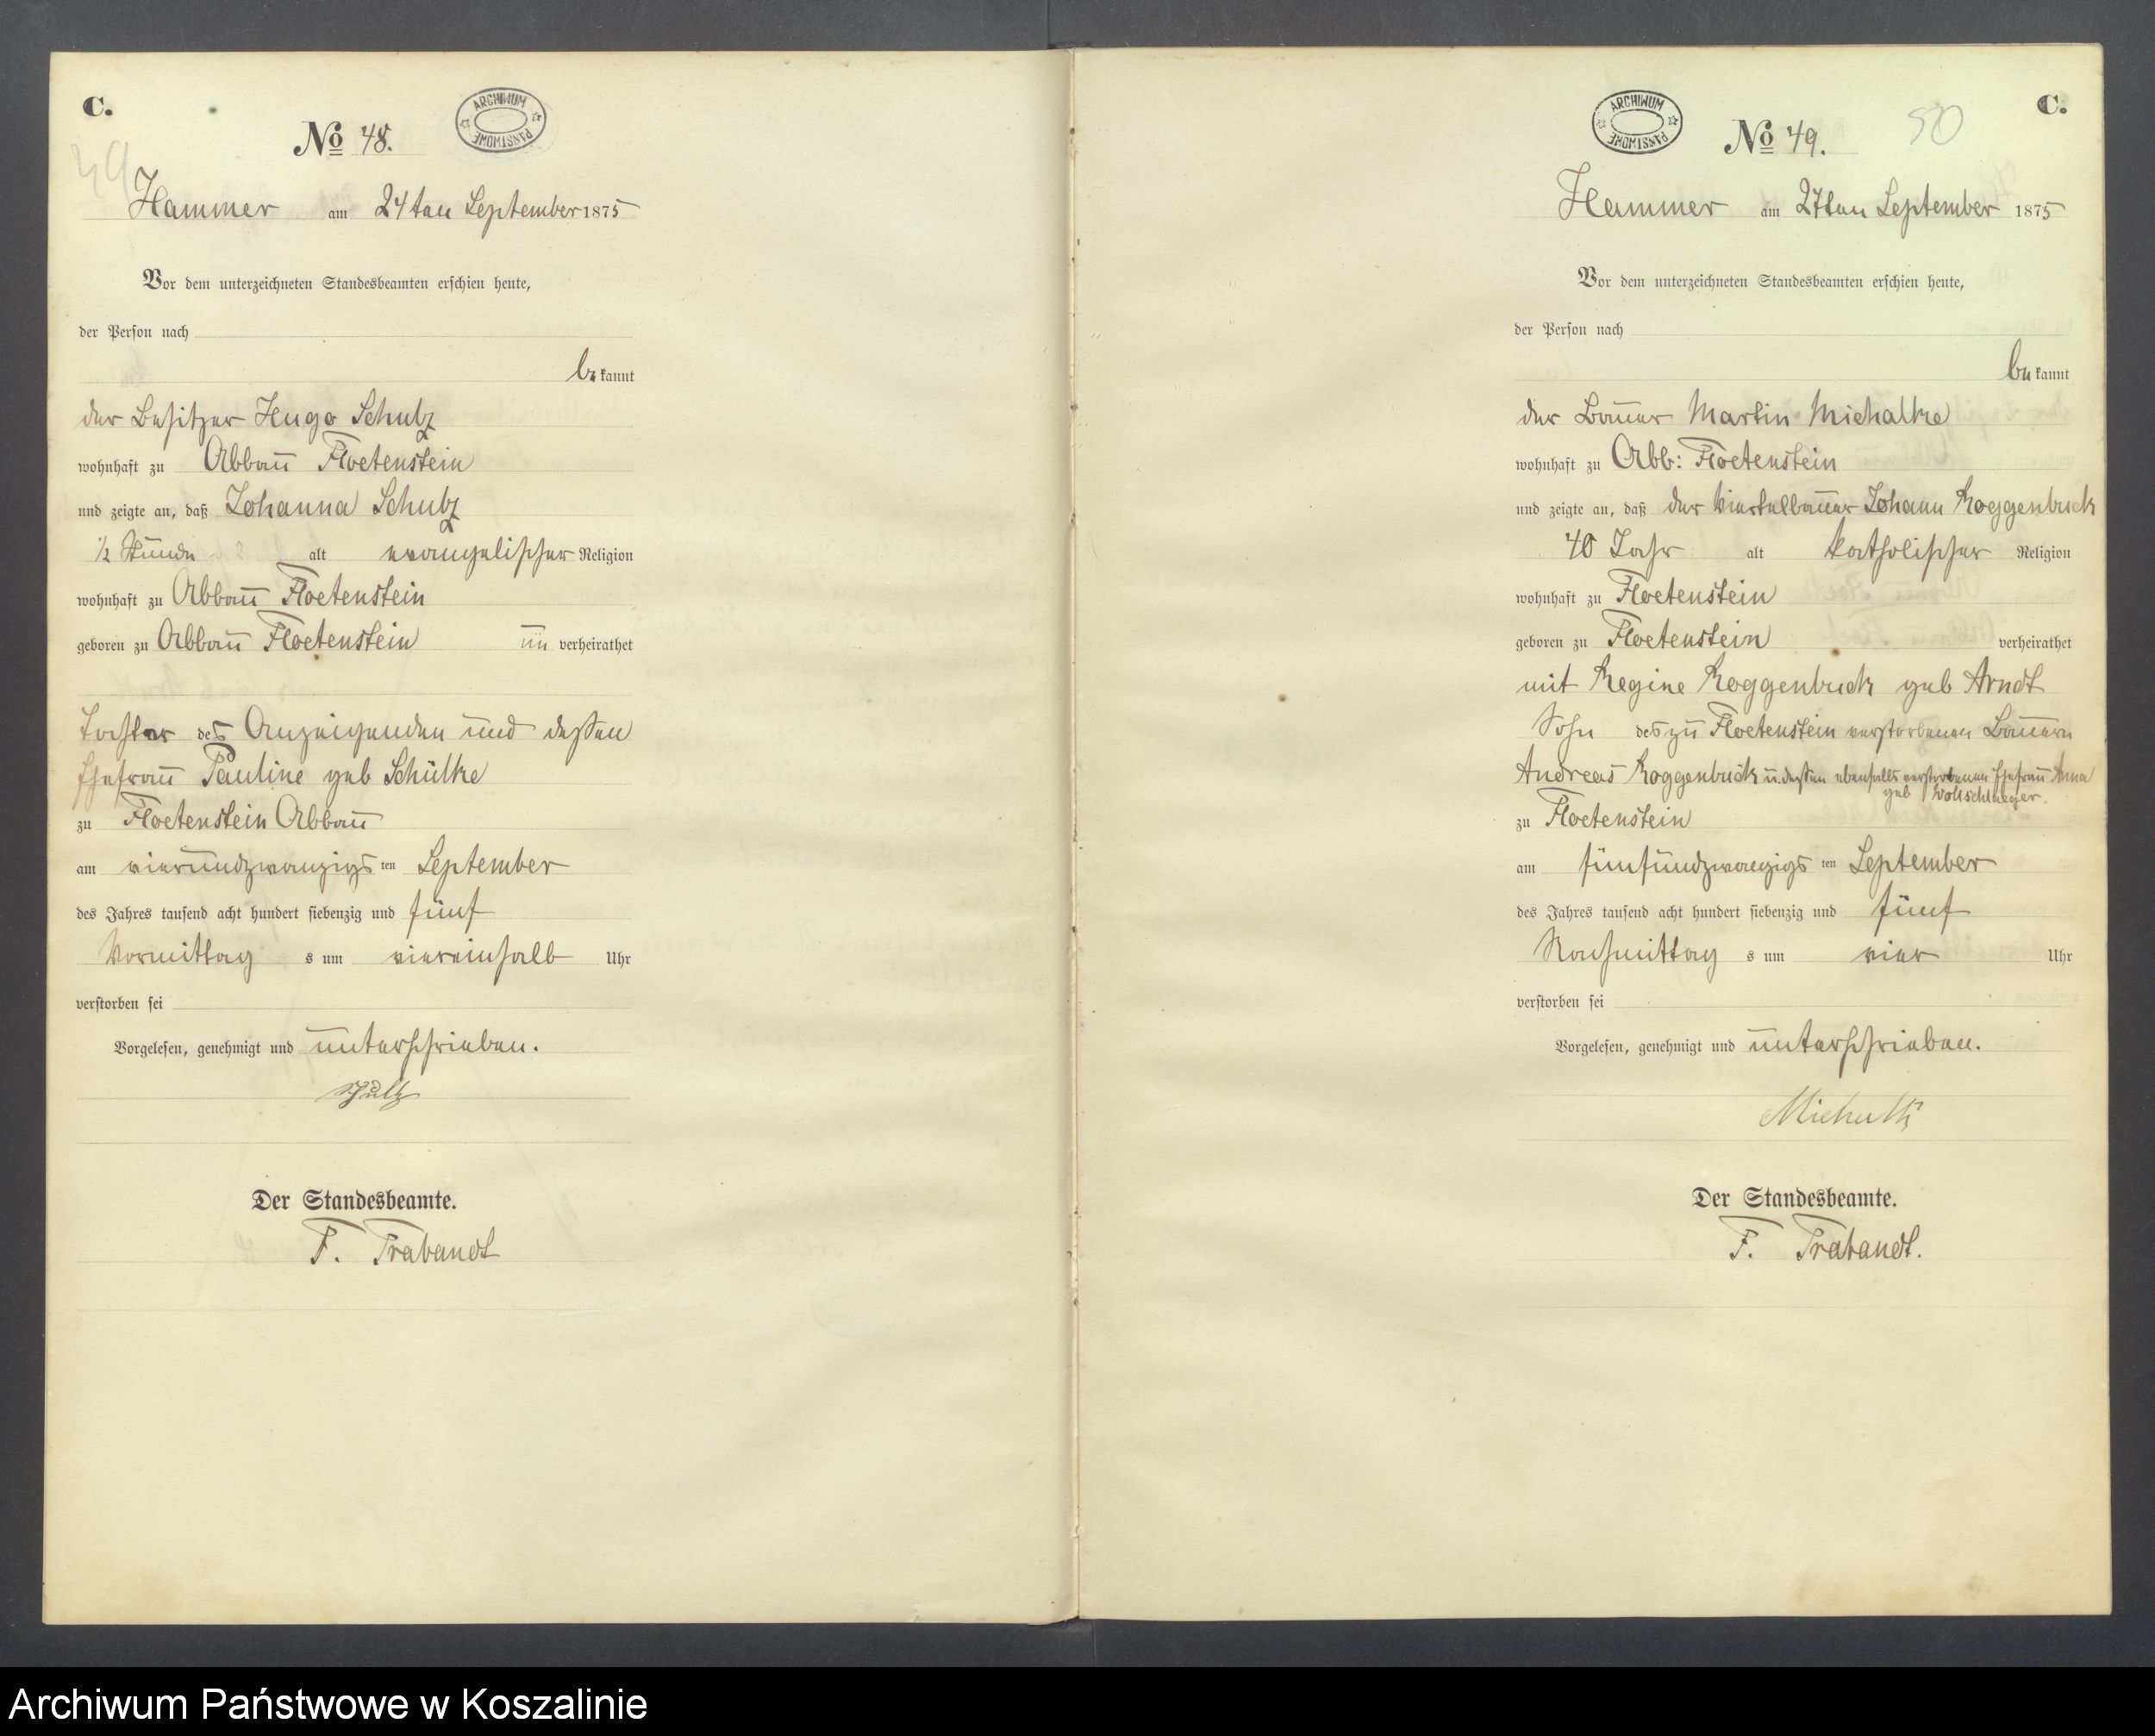 C.
49
No 48.
ARCHIWUM PAŃSTWOWE
Hammer am 24ten September 1875
Vor dem unterzeichneten Standesbeamten erschien heute,
der Person nach
bekannt
der Besitzer Hugo Schulz
wohnhaft zu Abbau Floetenstein
und zeigte an, daß Johanna Schulz
1/2 Stunde alt evangelischer Religion
wohnhaft zu Abbau Floetenstein
geboren zu Abbau Floetenstein un verheirathet
Tochter des Anzeigenden und dessen
Ehefrau Pauline geb Schülke
zu Floetenstein Abbau
am vierundzwanzigsten September
des Jahres tausend acht hundert siebenzig und fünf
Vormittags um viereinhalb Uhr
verstorben sei
Vorgelesen, genehmigt und unterschrieben.
Schulz
Der Standesbeamte.
F. Trabandt
C.
50
No 49.
ARCHIWUM PAŃSTWOWE
Hammer am 27ten September 1875
Vor dem unterzeichneten Standesbeamten erschien heute,
der Person nach
bekannt
der Bauer Martin Michalke
wohnhaft zu Abb: Floetenstein
und zeigte an, daß der Viertelbauer Johann Roggenbuck
40 Jahr alt katholischer Religion
wohnhaft zu Floetenstein
geboren zu Floetenstein verheirathet
mit Regine Roggenbuck geb Arndt
Sohn des zu Floetenstein verstorbenen Bauern
Andreas Roggenbuck u. dessen ebenfalls verstorbenen Ehefrau Anna
geb Wollschlaeger.
zu Floetenstein
am fünfundzwanzigsten September
des Jahres tausend acht hundert siebenzig und fünf
Nachmittags um vier Uhr
verstorben sei
Vorgelesen, genehmigt und unterschrieben.
Michalk
Der Standesbeamte.
F. Trabandt.
Archiwum Państwowe w Koszalinie